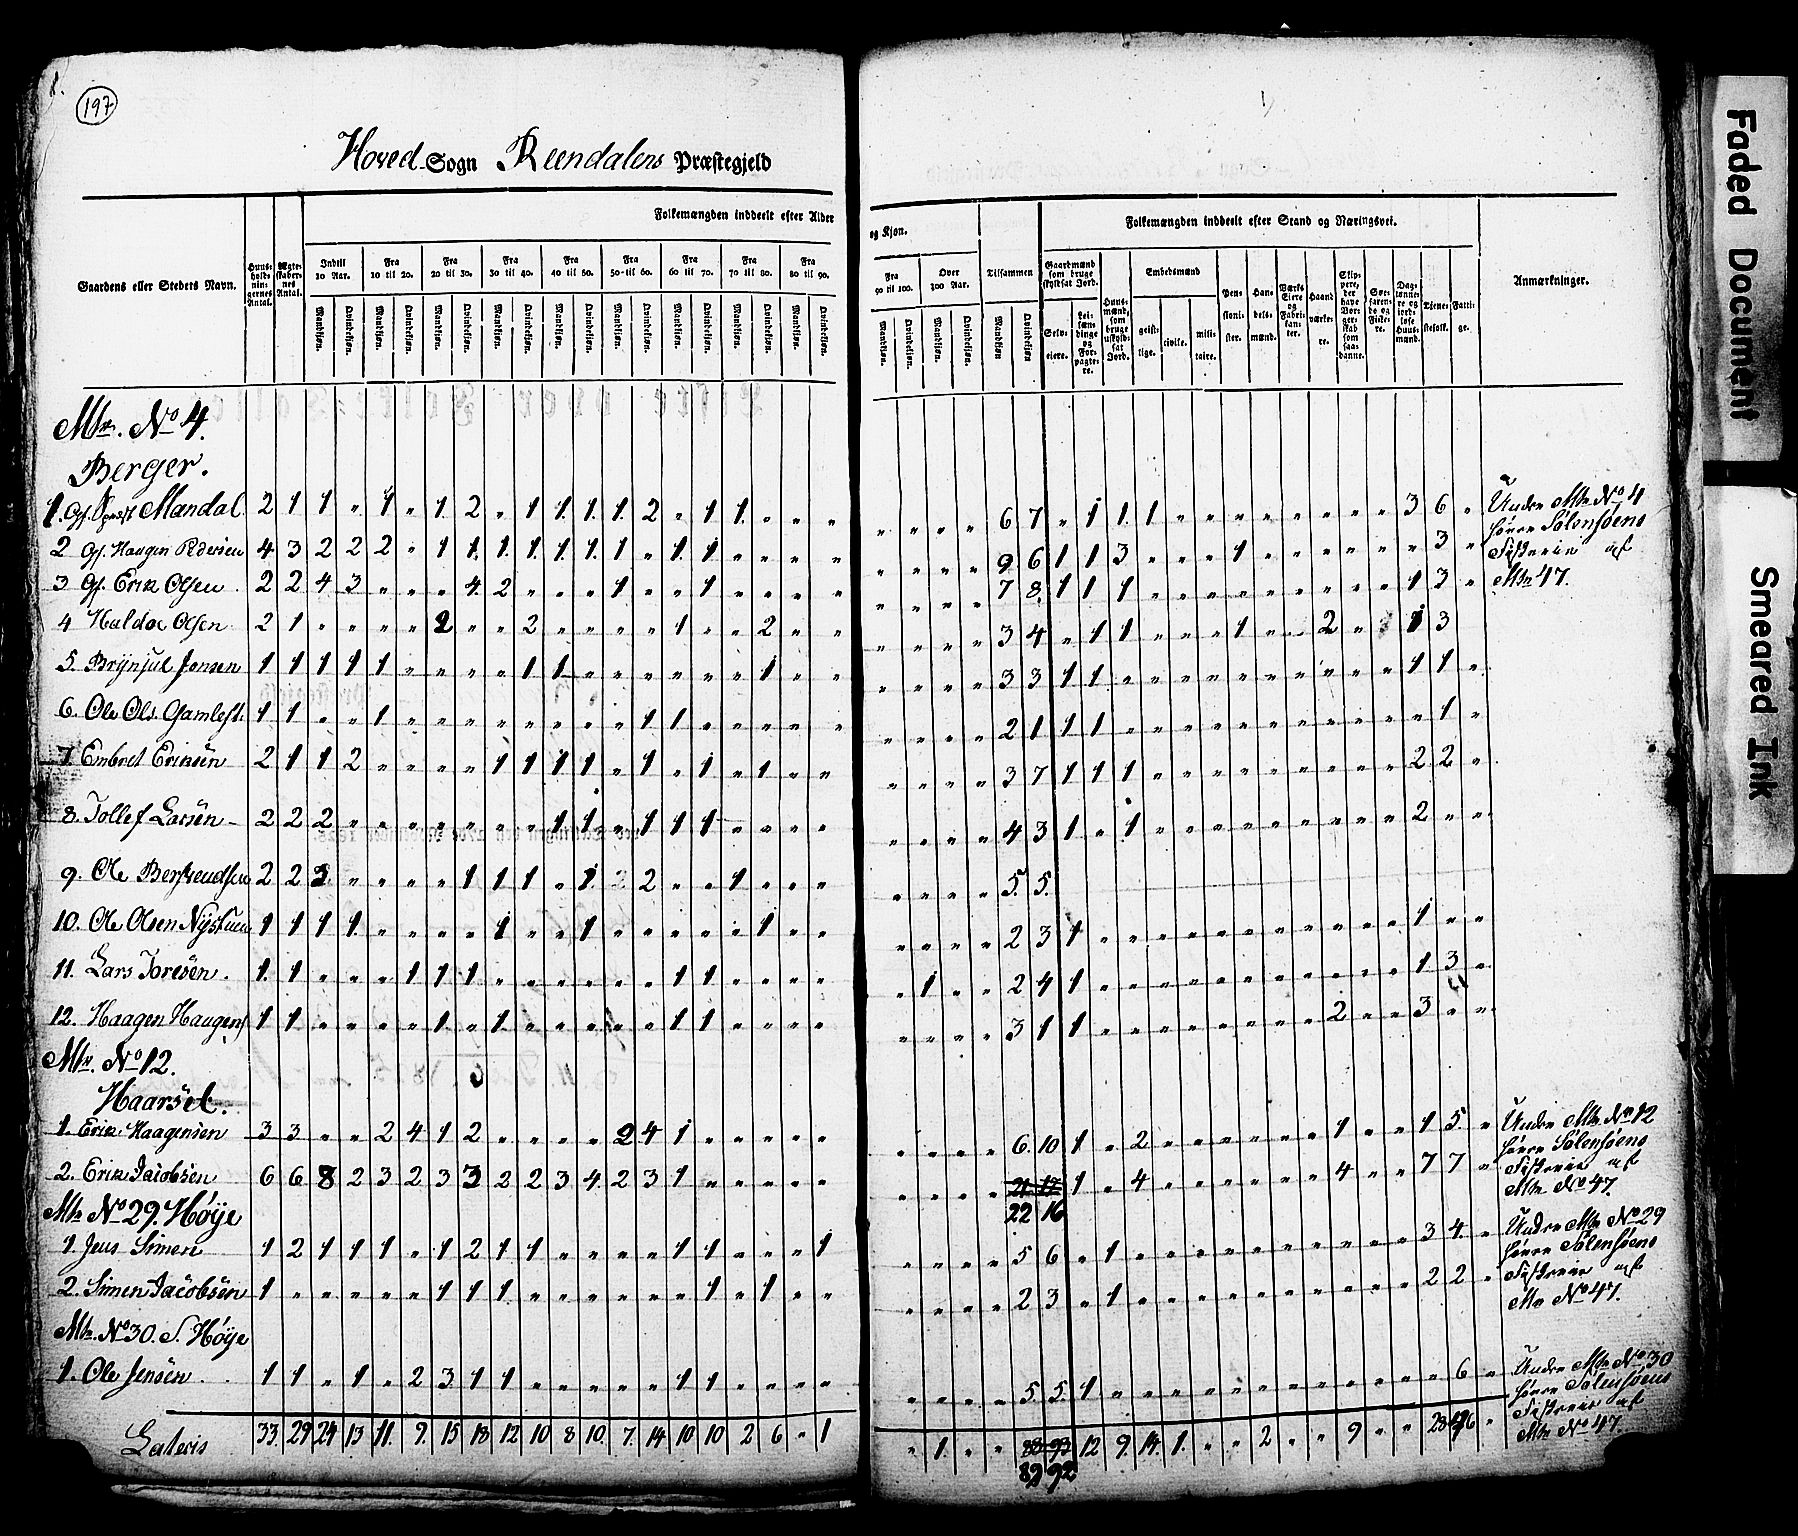 197
Hoved Sogn Reendalens Præstegjeld
Folkemængden inddeelt efter Alder og Kjøn.
Folkemængden inddeelt efter Stand og Næringsvei.
Gaardens eller Stedets Navn.
Huusholdningernes Antal.
Ægteskabernes Antal.
Indtil 10 Aar.
Fra 10 til 20.
Fra 20 til 30.
Fra 30 til 40.
Fra 40 til 50.
Fra 50 til 60.
Fra 60 til 70.
Fra 70 til 80.
Fra 80 til 90.
Fra 90 til 100.
Over 100 Aar.
Tilsammen
Mandkjøn. Qvindekjøn.
Gaardmænd som bruge skyldsat Jord.
Selveiere.
Leilændinge og Forpagtere.
Huusmænd, som bruge uskyldsat Jord.
Embedsmænd
geistlige. civile. militaire.
Pensionister.
Handelsmænd.
Værks Eiere og Fabrikanter.
Haandværkere.
Daglønnere og jordløse Huusmænd.
Tjenestefolk.
Fattige.
Anmærkninger.
Mtr. No 4.
Berger.
2 1 1 „ 1 „ 1 2 „ 1 1 1 1 2 „ 1 1 „ „ „ „ „ „ „ 6 7 „ 1 1 1 „ „ „ „ „ „ „ „ 3 6 „ Under Mtr No 4
2 Gf. Haagen Pedersen 4 3 2 2 2 „ 1 1 1 1 1 1 1 „ 1 1 „ „ „ „ „ „ „ „ 9 6 1 1 3 „ „ „ 1 „ „ „ „ „ „ 3 „ hører Sølensøens Fiskerie af
3 Gf. Erik Olsen 2 2 4 3 „ „ „ 4 2 „ „ „ 1 „ „ 1 „ „ „ „ „ „ „ „ 7 8 1 1 1 „ „ „ „ „ „ „ „ „ 1 3 „ Mtr 47.
4 Haldor Olsen 2 1 „ „ „ „ 2 „ „ 2 „ „ „ „ 1 „ „ 2 „ „ „ „ „ „ 3 4 „ 1 1 „ „ „ 1 „ „ 2 „ 1 3
5. Brynjul Jonsen 1 1 1 1 1 „ „ „ „ 1 1 „ „ „ „ „ „ 1 „ „ „ „ „ „ 3 3 1 1 „ „ „ „ „ „ „ „ „ „ 1 1 „
6. Ole Ols. Gamlest. 1 1 „ „ 1 „ „ „ „ „ „ „ „ 1 1 „ „ „ „ „ „ „ „ „ 2 1 1 1 „ „ „ „ „ „ „ „ „ „ „ 1 „
7. Embret Eriksen 2 1 1 2 „ „ „ „ 1 1 1 1 „ 1 „ 1 „ 1 „ „ „ „ „ „ 3 7 1 1 1 „ „ „ „ „ „ „ „ „ 2 2 „
8. Tollef Larsen 2 2 2 „ „ „ „ „ „ „ 1 1 „ 1 1 1 „ „ „ „ „ „ „ „ 4 3 1 „ 1 „ „ „ „ „ „ „ „ „ 2 „ „
9. Ole Bertheudsen 2 2 „ „ „ „ „ 1 1 1 „ 1 2 2 „ „ 1 „ „ „ „ „ „ „ 5. 5.
10. Ole Olsen Nystuen 1 1 1 1 „ „ „ „ 1 „ „ 1 „ „ „ „ „ 1 „ „ „ „ „ „ 2 3 1 „ „ „ „ „ „ „ „ „ „ „ 1 „ „
11. Lars Toresen. 1 1 „ „ „ 1 1 1 „ „ „ „ „ „ 1 1 „ „ „ „ „ 1 „ „ 2 4 1 „ „ „ „ „ „ „ „ „ „ „ 1 3 „
12. Haagen Haagens 1 1 „ „ „ „ 1 „ 1 „ „ „ „ „ 1 1 „ „ „ „ „ „ „ „ 3 1 1 „ „ „ „ „ „ „ „ 2 „ „ 3 „ „
Mtr. No 12.
Haarset.
1. Erik Haagensen 3 3 „ „ 2 4 1 2 „ „ „ „ 2 4 1 „ „ „ „ „ „ „ „ „ 6 10 1 „ 2 „ „ „ „ „ „ 1 „ „ 1 5 „ Under Mtr No 12
hører Sølensøens
2. Erik Jacobsen 6 6 8 2 3 2 3 3 2 2 3 4 2 3 1 „ „ „ „ „ „ „ „ „ 21 17 1 „ 4 „ „ „ „ „ „ 4 „ „ 7 7 „ Fiskerie af
22 16 Mtr No 47.
Mtr No 29. Høye
1. Jens Simen 1 2 1 1 1 „ 1 2 1 1 „ „ „ „ 1 1 „ „ „ 1 „ „ „ „ 5 6 „ 1 „ „ „ „ „ „ „ „ „ „ 3 4 „ Under Mtr No 29
hører Sølensøens
2. Simen Jacobsen 1 „ „ „ „ „ 1 1 1 „ „ „ „ „ „ 1 „ 1 „ „ „ „ „ „ 2 3 „ 1 „ „ „ „ „ „ „ „ „ „ 2 2 „ Fiskerie af
Mtr No 47.
Mtr. No 30. S. Høye
1. Ole Jensen 1 1 „ 1 „ 2 3 1 1 „ „ „ „ „ 1 1 „ „ „ „ „ „ „ „ 5 5 1 „ „ „ „ „ „ „ „ „ „ „ „ 6 „ Under Mtr No 30
hører Sølensøens
Fiskerie af
Mtr No 47.
Lateris 33. 29 24 13 11. 9. 15 18 12 10 8 10. 7. 14 10 10 2 6 „ 1 „ 1. „ „ 88 93 12 9. 14. 1. „ „ 2 „ „ 9 „ „ 28 46 „
89 92
Faded Document
Smeared Ink